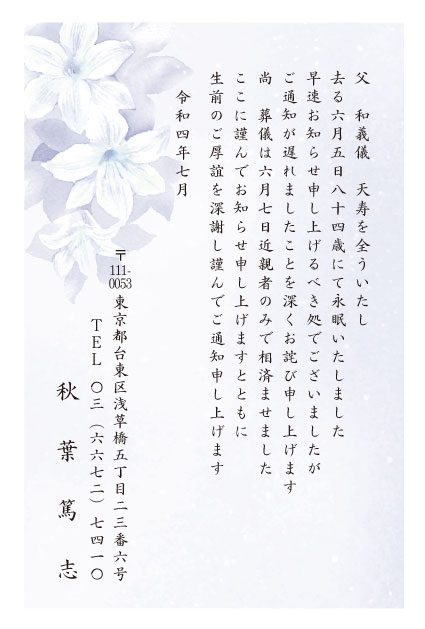 父　和義儀　天寿を全ういたし
去る六月五日八十四歳にて永眠いたしました
早速お知らせ申し上げるべき処でございましたが
ご通知が遅れましたことを深くお詫び申し上げます
尚　葬儀は六月七日近親者のみで相済ませました
ここに謹んでお知らせ申し上げますとともに
生前のご厚誼を深謝し謹んでご通知申し上げます
令和四年七月
〒111-0053 東京都台東区浅草橋五丁目二三番六号
TEL 〇三（六六七二）七四一〇
秋葉篤志